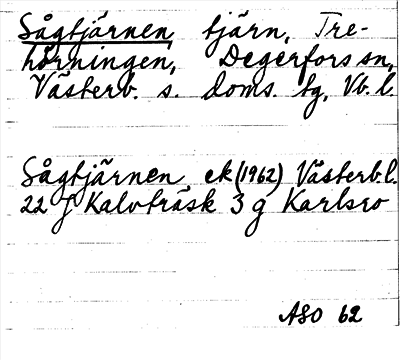 Sågtjärnen, tjärn, Tre-
hörningen, Degerfors sn,
Västerb. s. doms. tg, Vb. l.
Sågtjärnen ek (1962) Västerb.l.
22 J Kalvträsk 3 g Karlsro
ASO 62